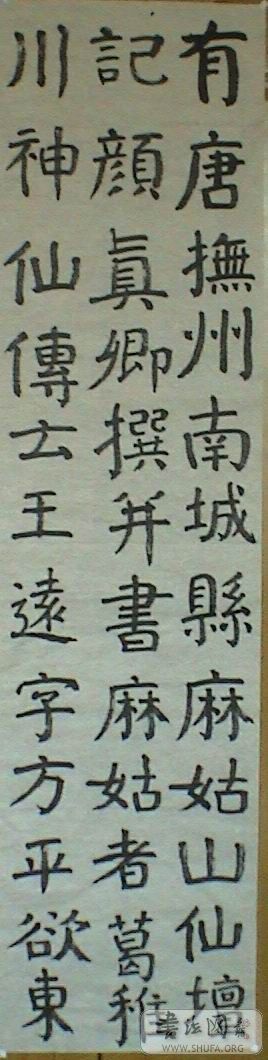 有唐撫州南城縣麻姑山仙壇
記顏眞卿撰并書麻姑者葛稚
川神仙傳云王遠字方平欲東
书法图库
WWW.SHUFA.ORG